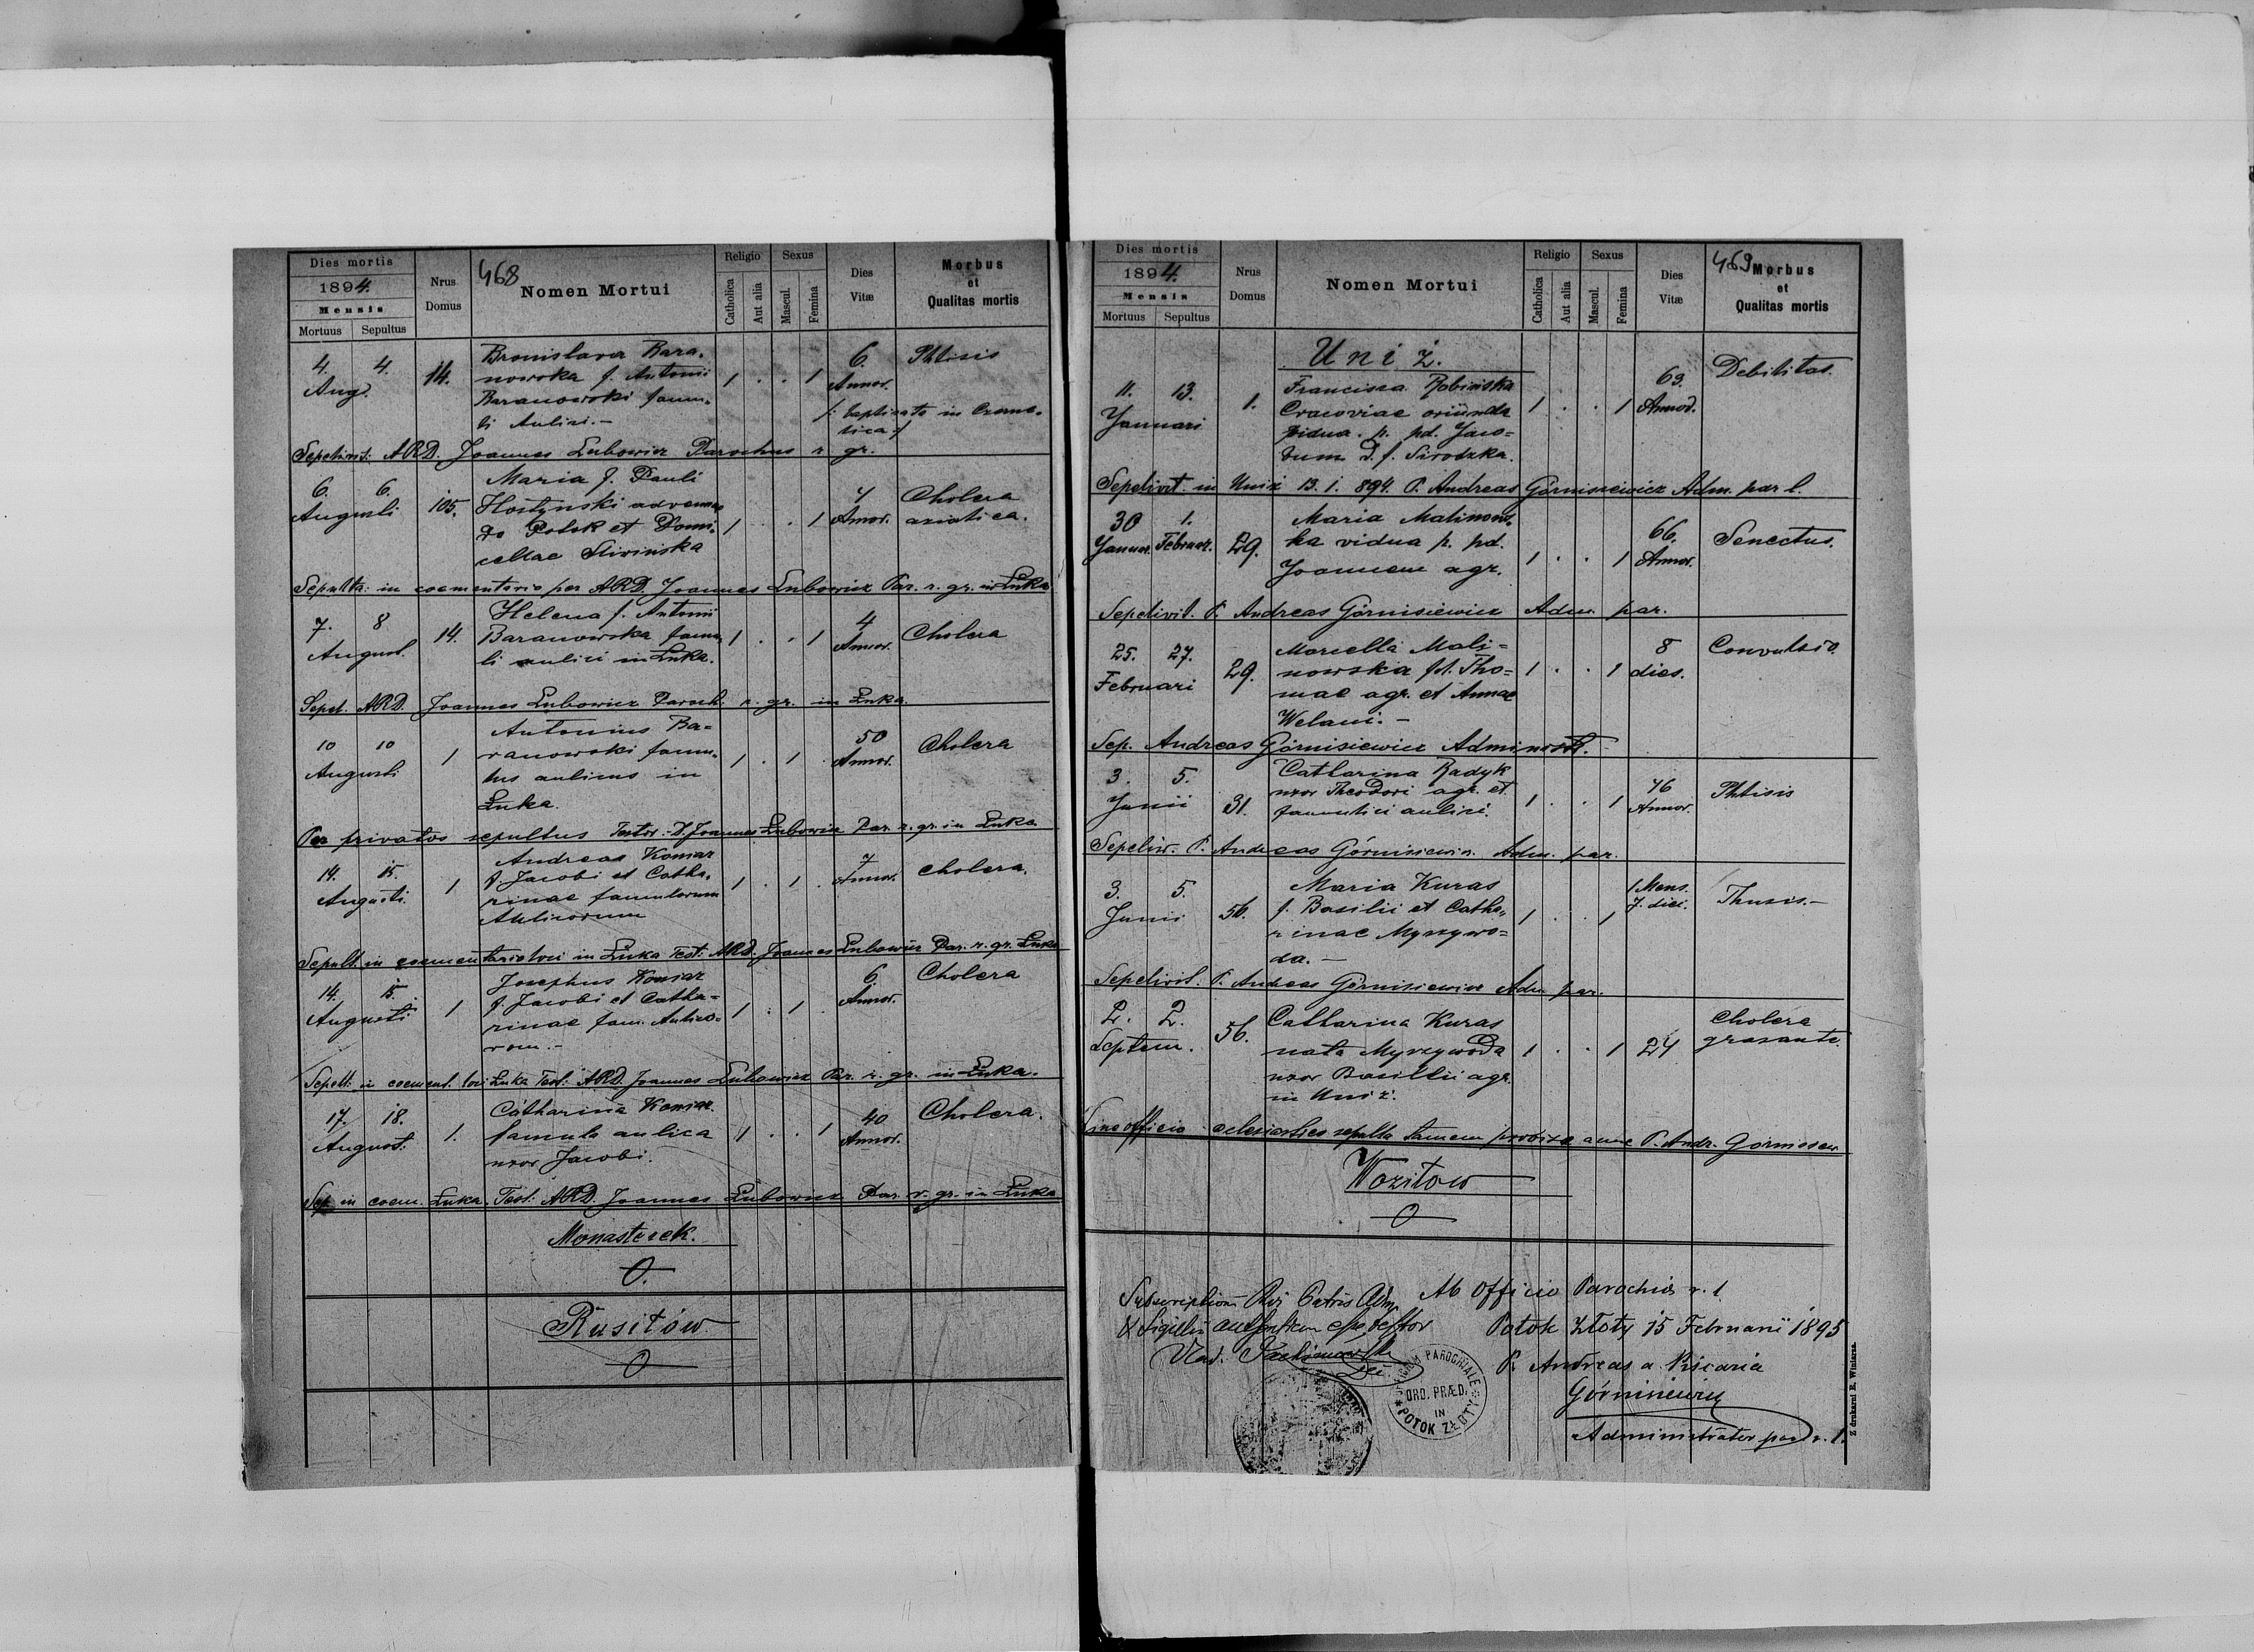 Dies mortis
1894.
Mensis
Mortuus Sepultus
Nrus
Domus
468
Nomen Mortui
Religio
Catholica
Aut alia
Sexus
Mascul.
Femina
Dies
Vitæ
Morbus
et
Qualitas mortis
4. 4. Aug. 14.
Bronislava Bara-
nowska f. Antonii
Baranowski famu-
li Aulici.-
1 . . 1
6.
Annor.
Phtisis
Sepelivit: ARD. Joannes Lubowicz Parochus r. gr.
6. 6. Augusti 105.
Maria f. Pauli
Hostynski advenae
do Potok et Domi-
cellae Sliwińska
1 . . 1
Annor.
Cholera
asiatica.
Sepulta: in coementerio per ARD. Joannes Lubowicz Par. r. gr. in Łuka
7. 8 August. 14.
Helena f. Antonii
Baranowska famu-
li aulici in Łuka.
1 . . 1
4
Annor.
Cholera
Sepel. ARD. Joannes Lubowicz Paroch. r. gr. in Łuka.
10 10 Augusti 1
Antonius Ba-
ranowski famu-
lus aulicus in
Łuka.
1 . 1
50
Annor.
Cholera
Per privatos sepultus Testor. D. Joannes Lubowicz Par. r. gr. in Łuka
14. 15. Augusti. 1
Andreas Komar
f. Jacobi et Catha-
rinae famulorum
Aulicorum
1 . 1 .
7
Annor.
cholera.
Sepult. in coementario loci in Łuka Test: ARD. Joannes Lubowicz Par. r. gr. Łuka
14. 15. Augusti 1
Josephus Komar
f. Jacobi et Catha-
rinae fam. Aulico-
rum.-
1 . 1 .
6.
Annor.
Cholera
Sepult: in coement. loci Łuka Test: ARD. Joannes Lubowicz Par. r. gr. in Łuka.
17. 18. August. 1.
Catharina Komar
famula aulica
uxor Jacobi.
1 . . 1
40
Annor.
Cholera.
Sep. in coem. Łuka. Test: ARD. Joannes Lubowicz Par. r. gr. in Łuka
Monasterek.
O.
Rusiłów
O
Dies mortis
1894.
Mensis
Mortuus Sepultus
Nrus
Domus
Nomen Mortui
Religio
Catholica
Aut alia
Sexus
Mascul.
Femina
Dies
Vitæ
469
Morbus
et
Qualitas mortis
Uniż.
11. 13. Januari 1.
Francisca
Cracoviae oriunda
vidua. p. pd. Jaco-
bum D. f. Sirodzka.
1 . . 1
69.
Annor.
Debilitas.
Sepelivit in Uniż 13.1.894. P. Andreas Górnisiewicz Adm. par l.
30 1. Januar. Februar. 29.
Maria Malinows-
ka vidua p. pd.
Joannem agr.
1 . . 1
66.
Annor.
Senectus.
Sepelivit. P. Andreas Górnisiewicz Adm. par.
25. 27. Februari 29.
Mali-
nowska fil. Tho-
mae agr. et Annae
Welani.-
1 . . 1
8
dies.
Convulsio.
Sep. Andreas Górnisiewicz Administr.
3. 5. Junii 31.
Catharina Radyk
uxor Theodori agr. et
aulici.
1 . . 1
46
Annor.
Phtisis
Sepeliv. P. Andreas Górnisiewicz. Adm. par.
3. 5. Junii 56.
Maria Kuras
f. Basilii et Catha-
rinae Myrzywo-
da.-
1 . . 1
1 Mens.
7. dies.
Thusis.-
Sepelivit. P. Andreas Górnisiewicz Adm. par.
2. 2. Septem. 56.
Catharina Kuras
nata Myrzywoda
uxor Basilii agr.
in Uniż.
1 . . 1
24
Cholera
grasante.
Sine officio eclesiastico sepulta tamen a me P. Andr. Górnisiew
Woziłow
O
Subscriptionem Patris Adm.
& Sigilli
Vlad.
Ab Officio Parochia r. l.
Potok Złoty 15 Februarii 1895
P. Andreas a
Górnisiewicz
Administrator par. r. l.
PAROCHIALE
ORD. PRÆD.
IN
POTOK ZŁOTY
Z drukarni E. Winiarza.